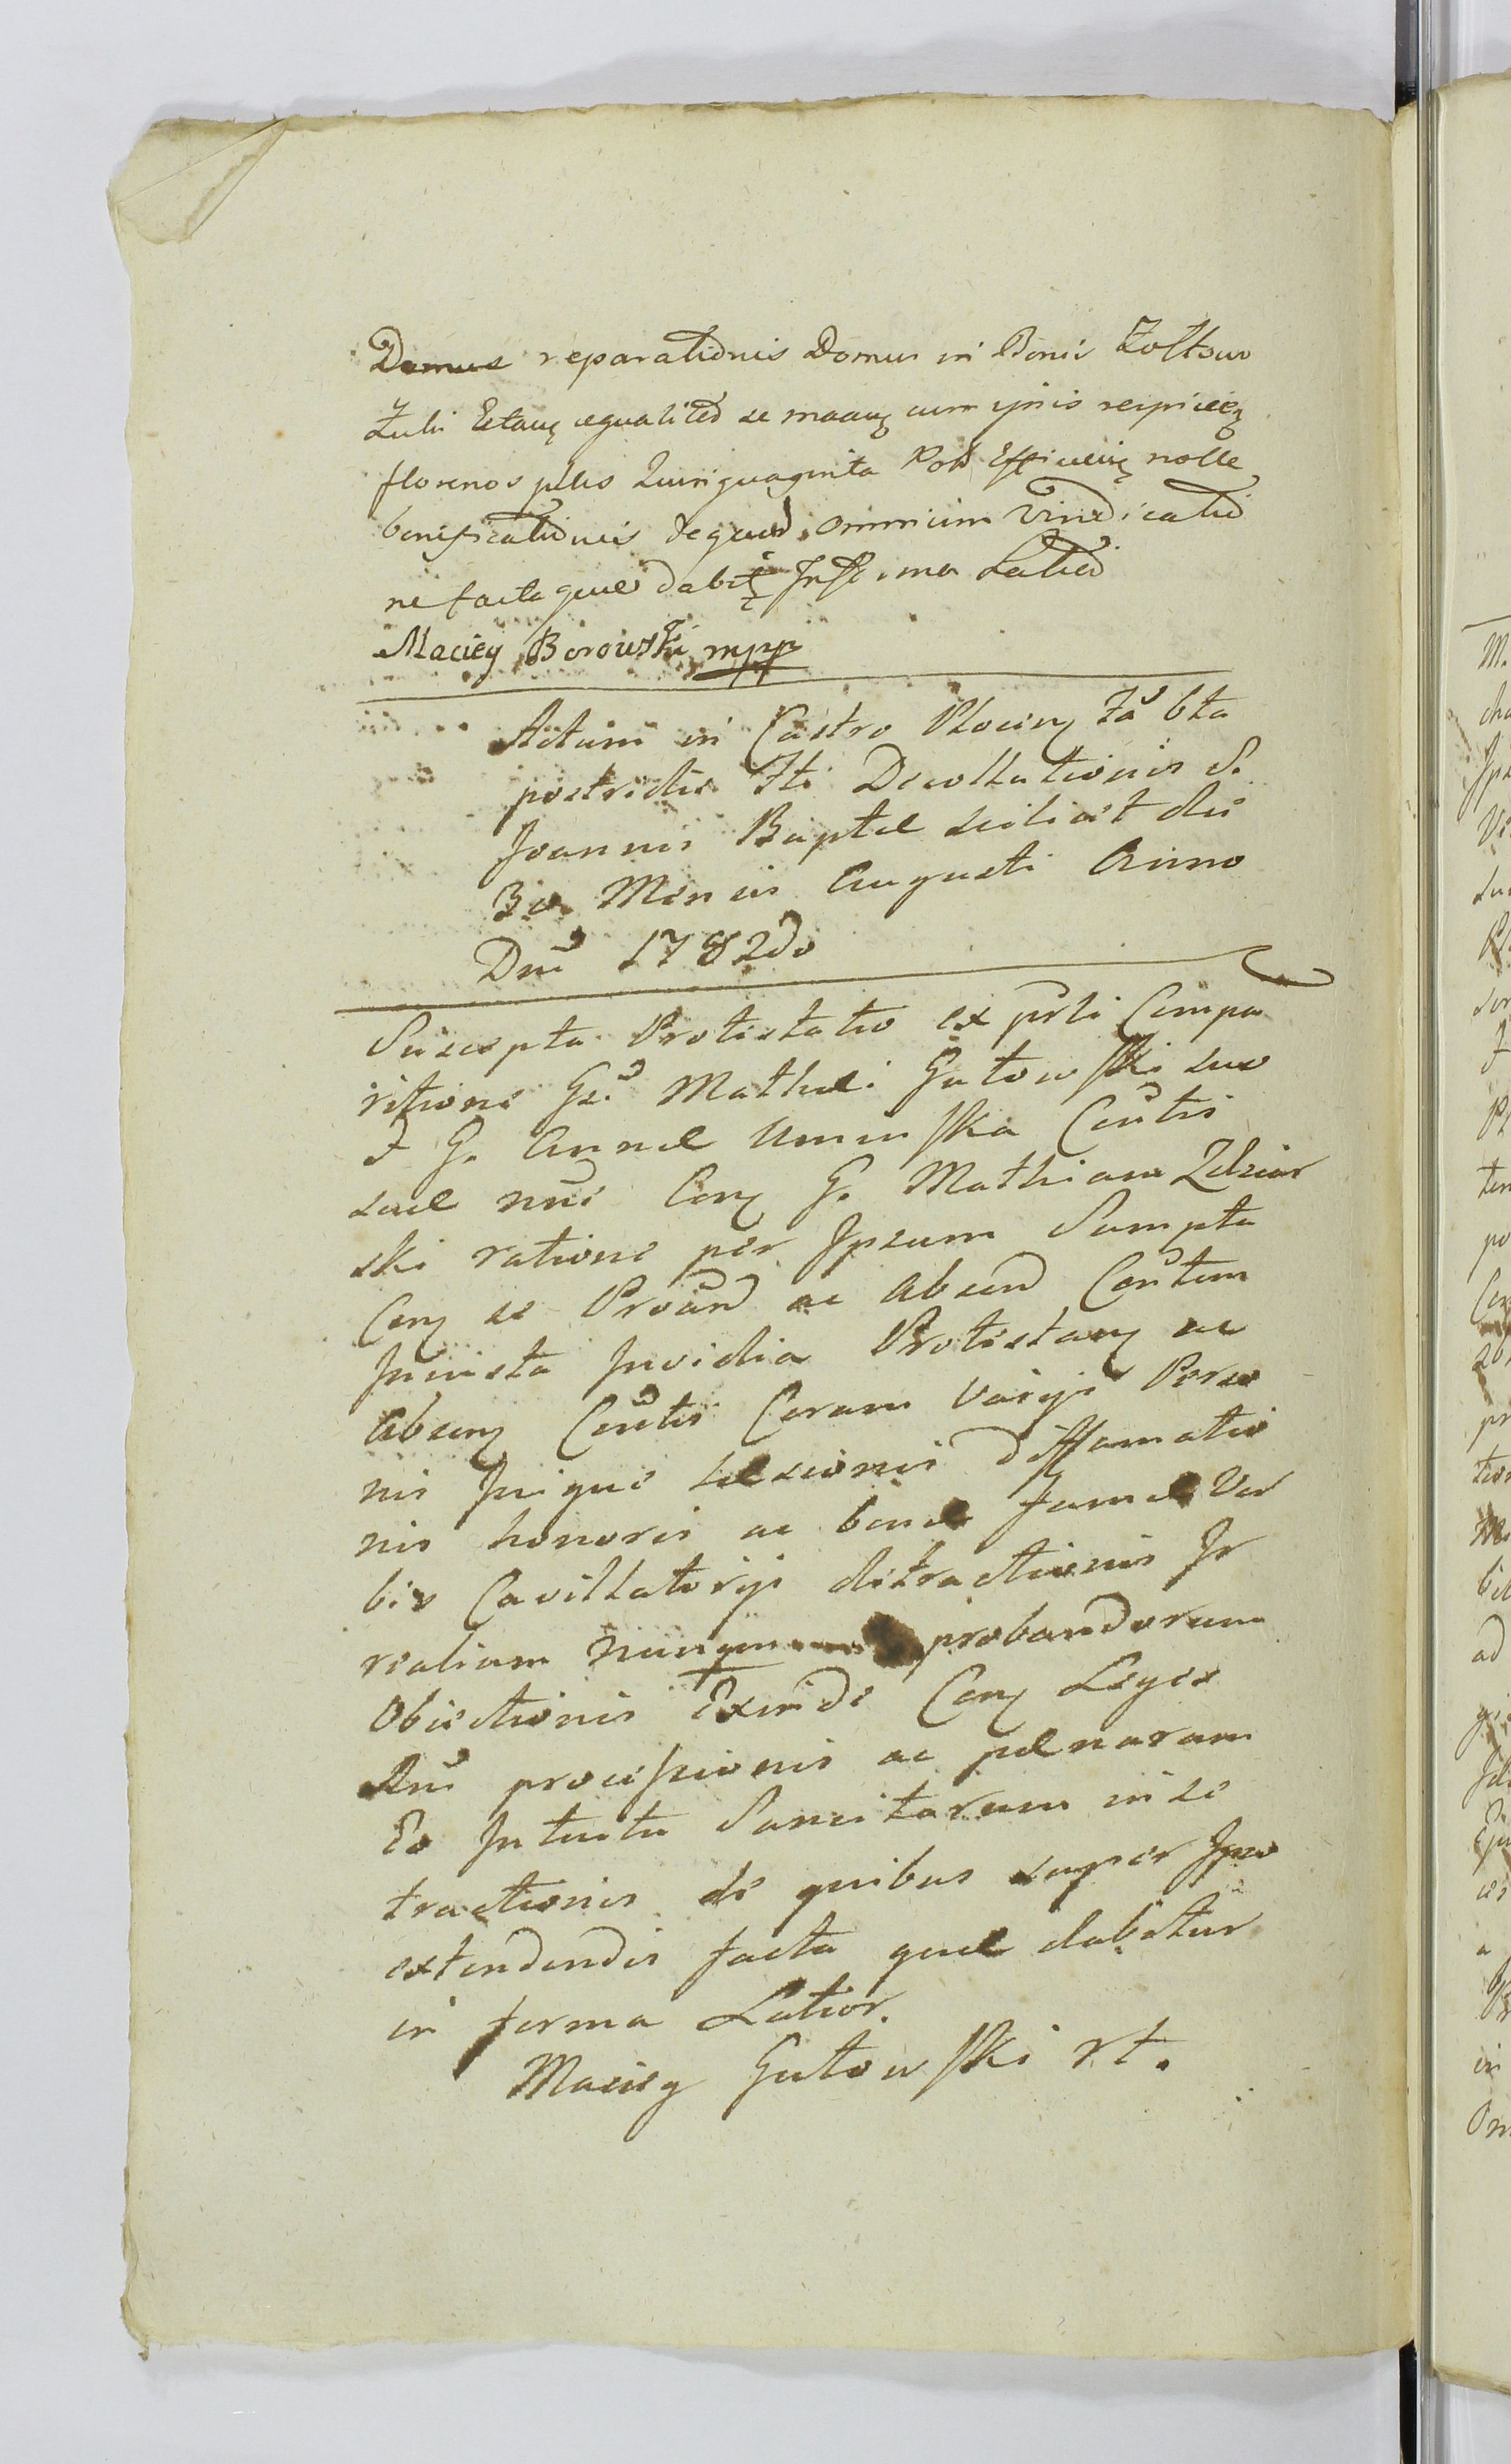 reparationis Domus in Bonis Zołtowo
aequaliter se cum ipsis
florenos plles Quinquaginta Poles nolle
bonificationis de quod omnium Vindicatio
ne facta que dabit In fforma Latior
Maciey Borowski mpp
Actum in Castro Plocen fa 6ta
postridie fti Decollationis S.
Joannis Baptae scilicet die
30 Mensis Augusti Anno
Dni 1782do
Suscepta Protestatio ex psti Compa
ritione Gsi Mathei Gutowski suo
et G. Annae Uminska Contis
suae nne Con G. Mathiam Zdziar
ski ratione per Ipsum Sumpta
Con se Protan ac absen Contem
Iniusta Invidia Protestan ac
absen Contis Coram Varijs Perso
nis Inique laesionis diffamatio
nis honoris ac bonae famae Ver
bis Cavillatorijs detractionis In
realium nunqm probandorum
Obiectionis Exinde Con Leges
Rni processionis ac paenarum
Eo Intuitu Sancitarum in se
tractionis de quibus super Ipso
extendendis facta quae dabitur
in forma Latior.
Maciey Gutowski rt.